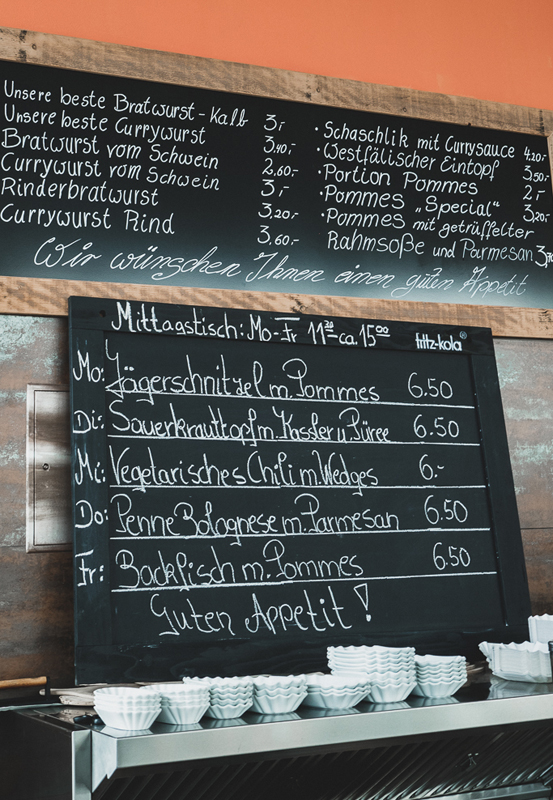 Unsere beste Bratwurst - Kalb 3,-
Unsere beste Currywurst 3,40,-
Bratwurst vom Schwein 2,60,-
Currywurst vom Schwein 3,-
Rinderbratwurst 3,20,-
Currywurst Rind 3,60,-
· Schaschlik mit Currysauce 4,20,-
· Westfälischer Eintopf 3,50,-
· Portion Pommes 2,-
· Pommes „Special“ 3,20,-
· Pommes mit getrüffelter
Rahmsoße und Parmesan
Wir wünschen Ihnen einen guten Appetit
Mittagstisch: Mo-Fr 11³⁰-ca. 15⁰⁰ fritz-kola®
Mo: Jägerschnitzel m. Pommes 6.50
Di: Sauerkrauttopf m. Kassler u. Püree 6.50
Mi: Vegetarisches Chili m. Wedges 6.-
Do: Penne Bolognese m. Parmesan 6.50
Fr: Backfisch m. Pommes 6.50
Guten Appetit!